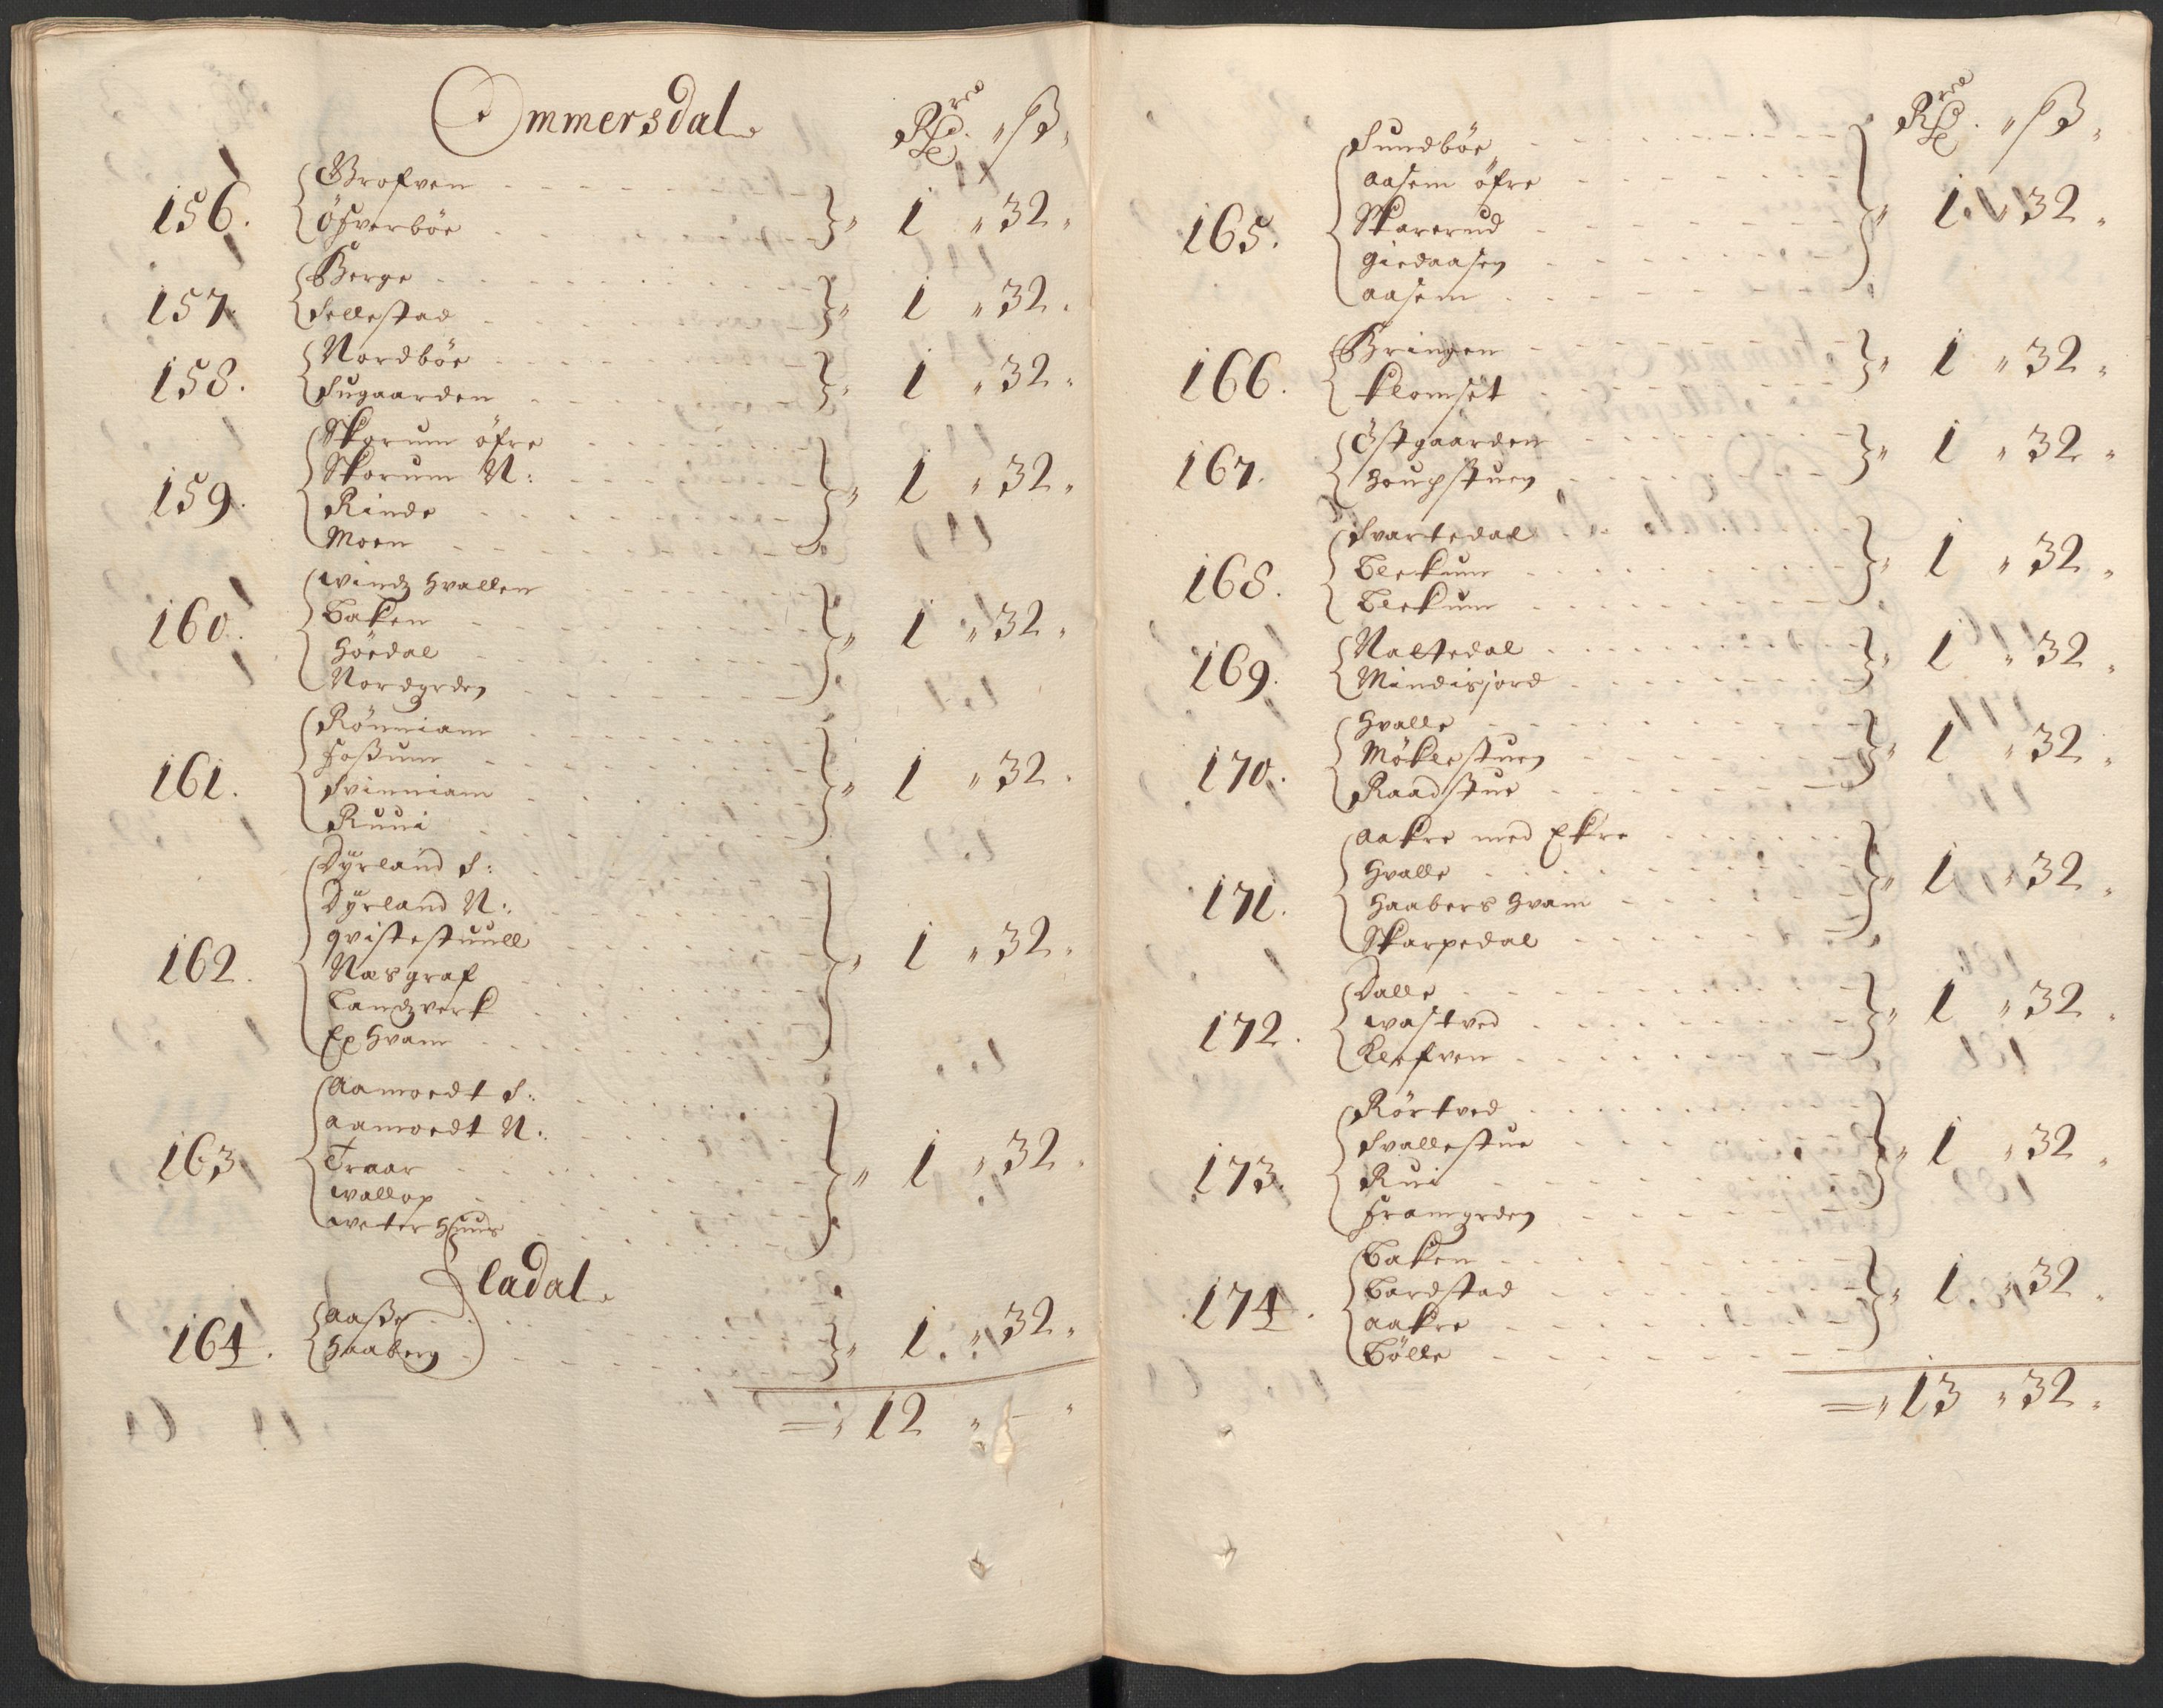 Ommersdal
Rdr ß
156. Grofven
Öfverböe 1 32
157. Berge
Sellestad 1 32
158. Nordböe
Sugaarden 1 32
159. Skorum öfre
Skorum N:
Rinde
Moen 1 32
160. Windz Hvallen
Baken
Höedal
Nordgrden 1 32
161. Rönniam
Foßum
Svinniam
Ruui 1 32
162. Dyrland S:
Dyrland N:
Qvistestuull
Næsgraf
Landzverk
Ep Hvam 1 32
163 Aamoedt S:
Aamoedt N:
Traar
Wallop
Weter Huus 1 32
Fladal
164. Aaße
Haaberg 1 32
12 -
Rdr ß
165. Sundböe
Aasem öfre
Skarerud
Giedaasen
Aasem 1 32
166. Bringen
Klomset 1 32
167. Östgaarden
Houpstuen 1 32
168. Svartedal
Blekum
Blekum 1 32
169. Naltedal
Mindisjord 1 32
170. Hvalle
Möklestuen
Raadstue 1 32
171. Aakre med Ekre
Hvalle
Haabers Hvam
Skarpedal 1 32
172. Dalle
Wastved
Klefven 1 32
173. Rörtved
Svallestue
Rui
Framgrden 1 32
174. Baken
Bardstad
Aakre
Bölle 1 32
13 32